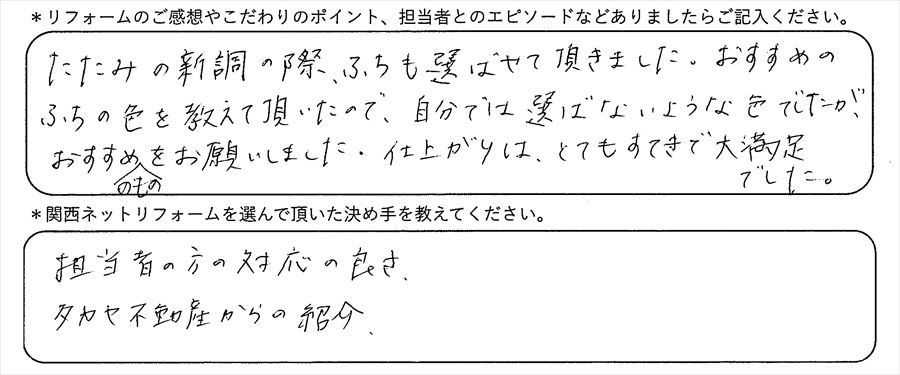 *リフォームのご感想やこだわりのポイント、担当者とのエピソードなどありましたらご記入ください。
たたみの新調の際、ふちも選ばせて頂きました。おすすめの
ふちの色を教えて頂いたので、自分では選ばないような色でしたが、
おすすめのものをお願いしました。仕上がりは、とてもすてきで大満足
でした。
*関西ネットリフォームを選んで頂いた決め手を教えてください。
担当者の方の対応の良さ、
タカヤ不動産からの紹介、